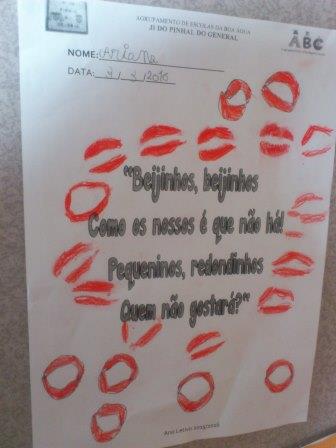 AGRUPAMENTO DE ESCOLAS DA BOA ÁGUA
JI DO PINHAL DO GENERAL
ABC
NOME: Ariana
DATA:
"Beijinhos, beijinhos
Como os nossos é que não há!
Pequeninos, redondinhos
Quem não gostará?"
Ano Letivo